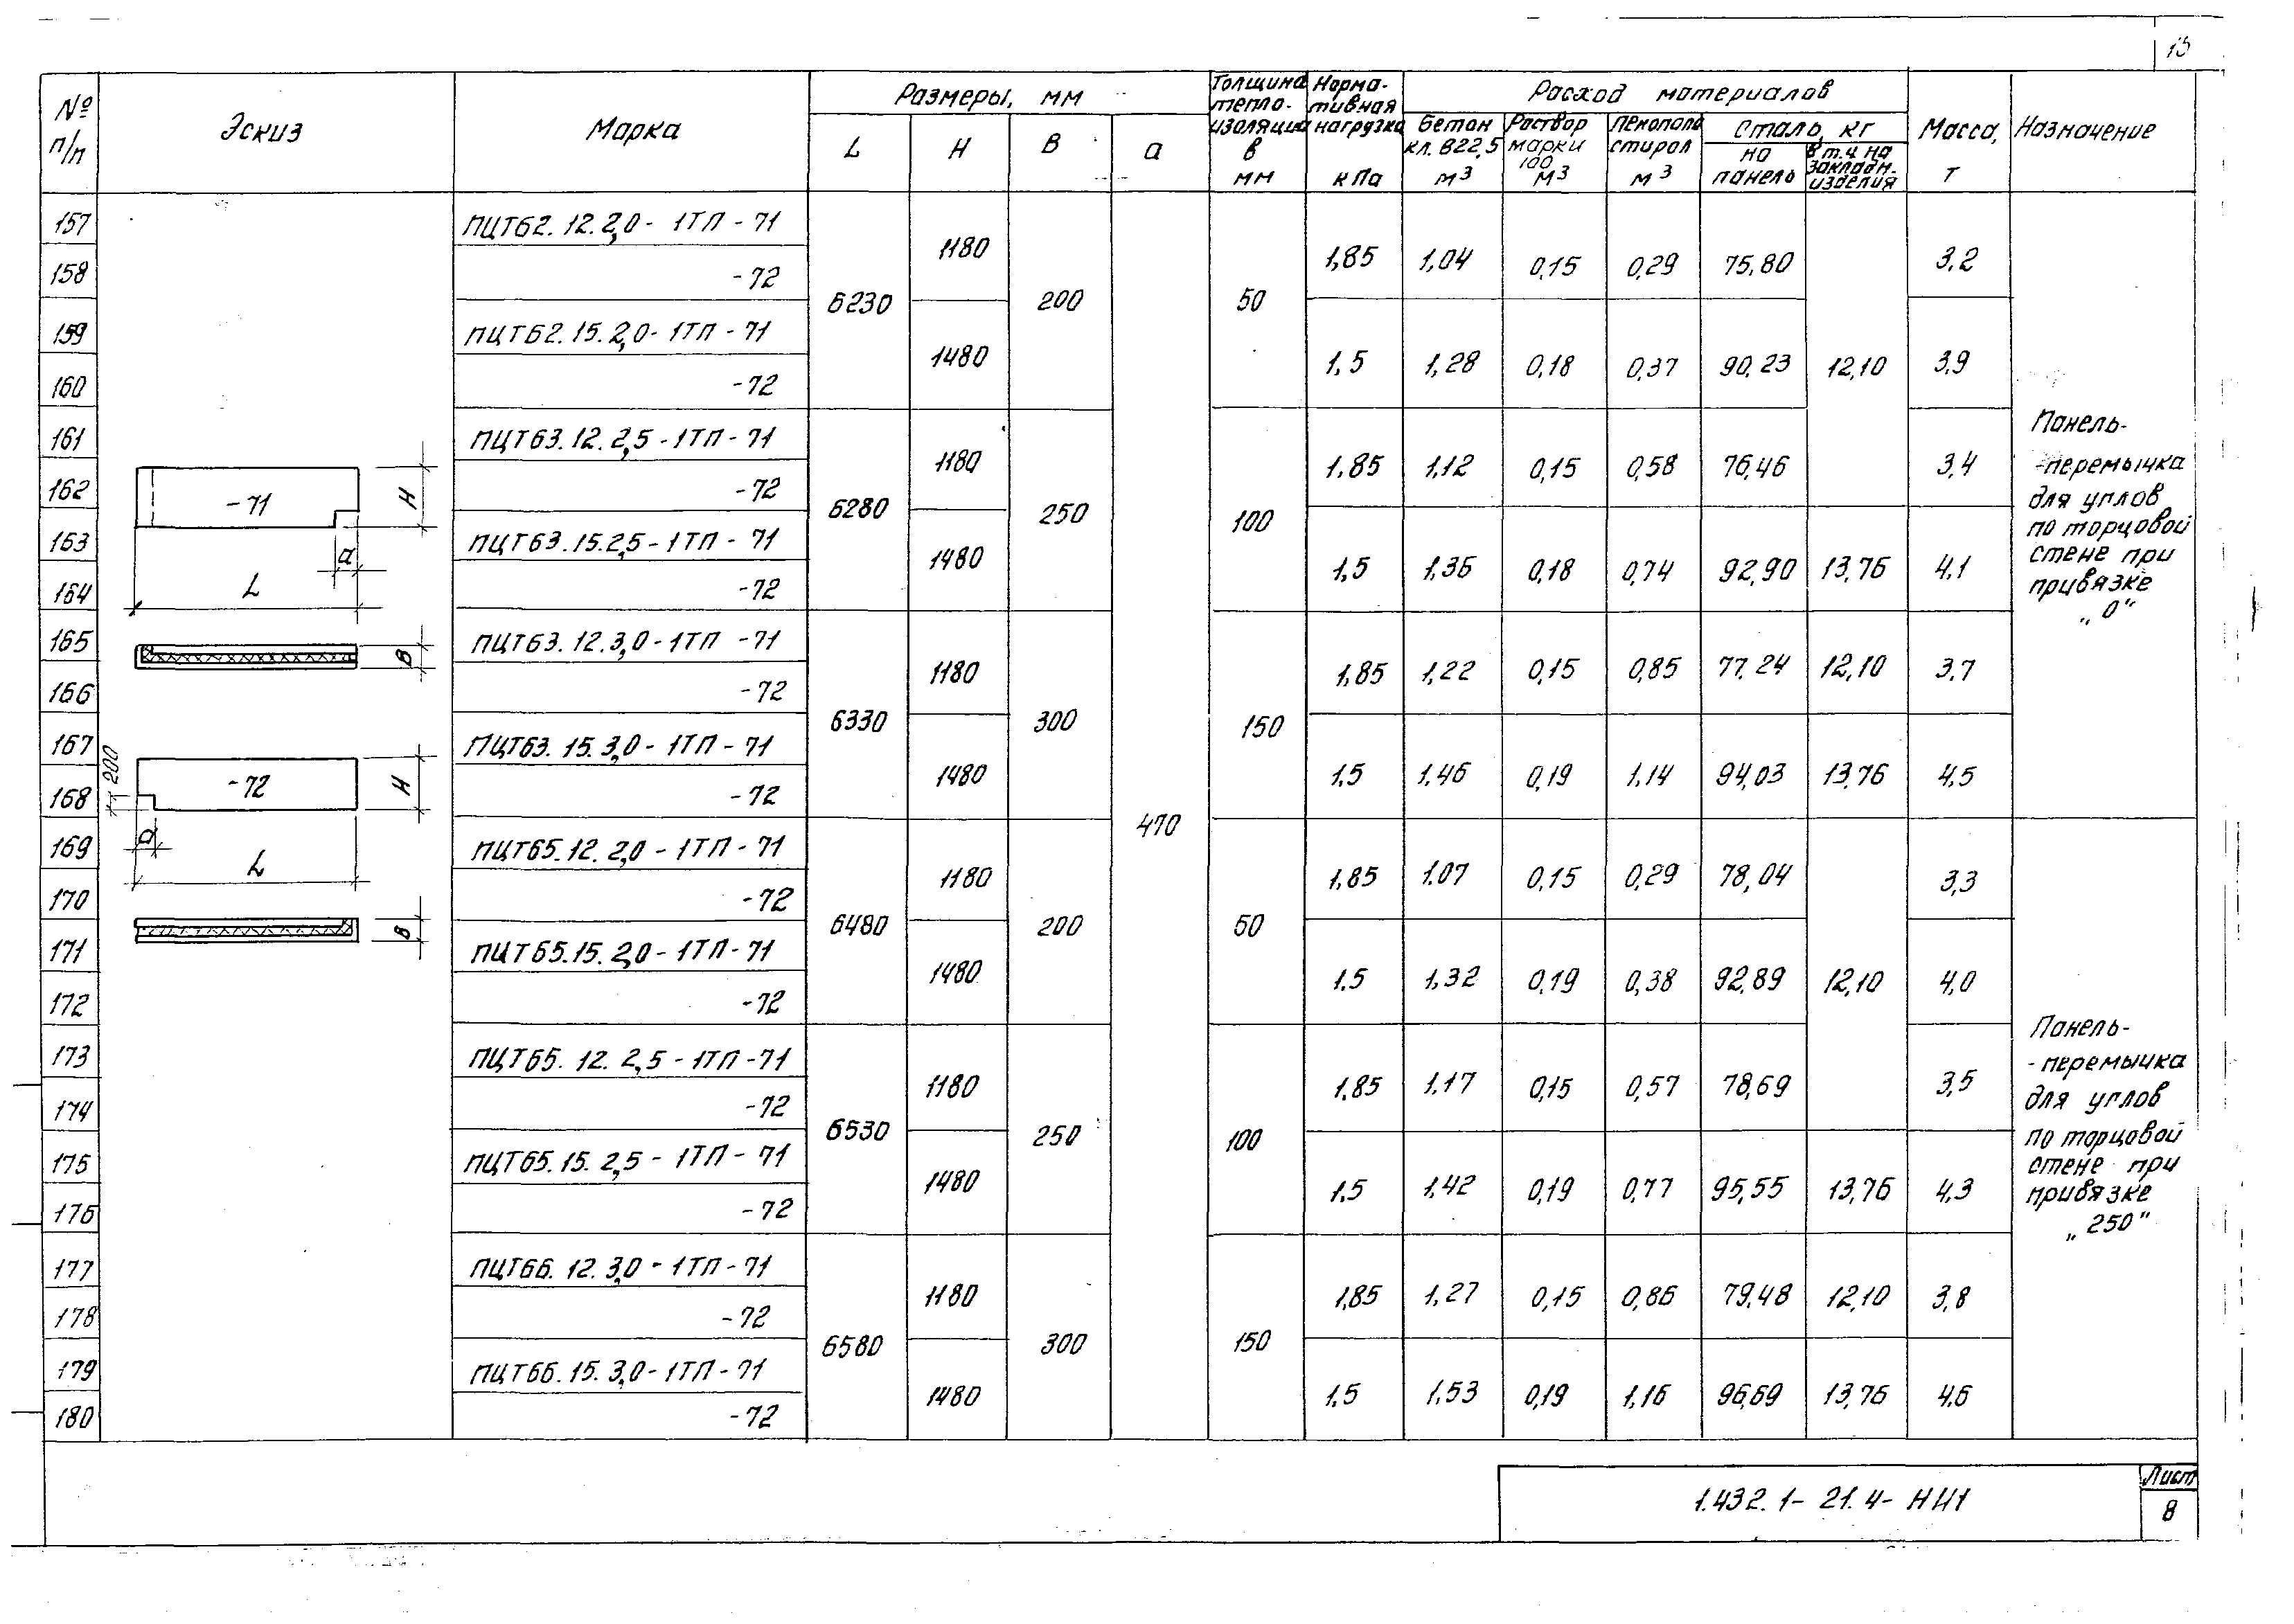 15
№ п/п
Эскиз
Марка
Размеры, мм
L
H
B
a
Толщина тепло- изоляции в мм
Норма- тивная нагрузка кПа
Расход материалов
Бетон кл. В22,5 м³
Раствор марки 100 м³
Пенопола стирол м³
Сталь, кг
на панель
в т.ч. на закладн. изделия
Масса, т
Назначение
157 ПЦТ62.12.2,0-1ТП-71
158 -72
6230 1180 200 470 50 1,85 1,04 0,15 0,29 75,80 3,2
159 ПЦТ62.15.2,0-1ТП-71
160 -72
1480 1,5 1,28 0,18 0,37 90,23 12,10 3,9
161 ПЦТ63.12.2,5-1ТП-71
162 -72
6280 1180 250 100 1,85 1,12 0,15 0,58 76,46 3,4
163 ПЦТ63.15.2,5-1ТП-71
164 -72
1480 1,5 1,36 0,18 0,74 92,90 13,76 4,1
165 ПЦТ63.12.3,0-1ТП-71
166 -72
6330 1180 300 150 1,85 1,22 0,15 0,85 77,24 12,10 3,7
167 ПЦТ63.15.3,0-1ТП-71
168 -72
1480 1,5 1,46 0,19 1,14 94,03 13,76 4,5
Панель-
-перемычка
для углов
по торцовой
стене при
привязке
„0“
169 ПЦТ65.12.2,0-1ТП-71
170 -72
6480 1180 200 50 1,85 1,07 0,15 0,29 78,04 3,3
171 ПЦТ65.15.2,0-1ТП-71
172 -72
1480 1,5 1,32 0,19 0,38 92,89 12,10 4,0
173 ПЦТ65.12.2,5-1ТП-71
174 -72
6530 1180 250 100 1,85 1,17 0,15 0,57 78,69 3,5
175 ПЦТ65.15.2,5-1ТП-71
176 -72
1480 1,5 1,42 0,19 0,77 95,55 13,76 4,3
177 ПЦТ66.12.3,0-1ТП-71
178 -72
6580 1180 300 150 1,85 1,27 0,15 0,86 79,48 12,10 3,8
179 ПЦТ66.15.3,0-1ТП-71
180 -72
1480 1,5 1,53 0,19 1,16 96,69 13,76 4,6
Панель-
-перемычка
для углов
по торцовой
стене при
привязке
„250“
-71
H
a
L
B
200
-72
H
a
L
B
1.432.1-21.4-НИ1
Лист
8